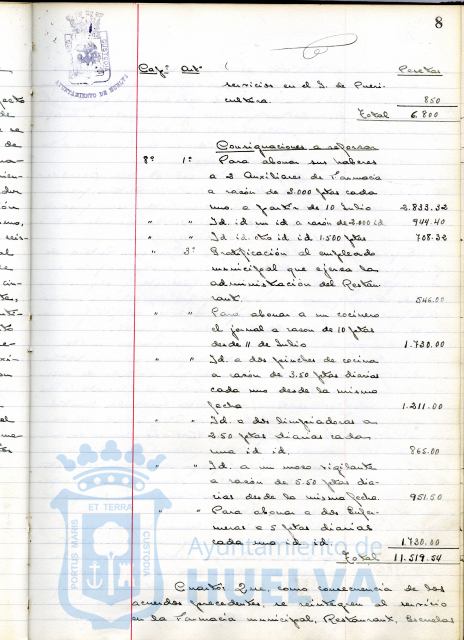 8
AYUNTAMIENTO DE HUELVA
Cap.º Art.º Pesetas
servicios en el I. de Pueri-
cultura. 850
Total 6.800
Consignaciones a reforzar
8º 1º Para abonar sus haberes
a 2 Auxiliares de Farmacia
a razón de 3.000 ptas cada
uno a partir de 10 Julio 2.833.32
" " Id. id un id a razón de 2.000 id 944.40
" " Id id. otro id id 1.500 ptas 708.32
" 3º Gratificación al empleado
municipal que ejerza la
administración del Restau-
rant. 546.00
" " Para abonar a un cocinero
el jornal a razón de 10 ptas
desde 11 de Julio 1.730.00
" " Id. a dos pinches de cocina
a razón de 3.50 ptas diarias
cada uno desde la misma
fecha 1.211.00
" " Id. a dos limpiadoras a
2.50 ptas diarias cada
una id id. 865.00
" " Id. a un mozo vigilante
a razón de 5.50 ptas dia-
rias desde la misma fecha. 951.50
" " Para abonar a dos Enfer-
meras a 5 ptas diarias
cada una id id. 1.730.00
Total 11.519.54
Cuarto: Que, como consecuencia de los
acuerdos precedentes, se reintegren al servicio
en la Farmacia municipal, Restaurant, Escuelas
PORTUS MARIS ET TERRAE CUSTODIA
Ayuntamiento de
HUELVA